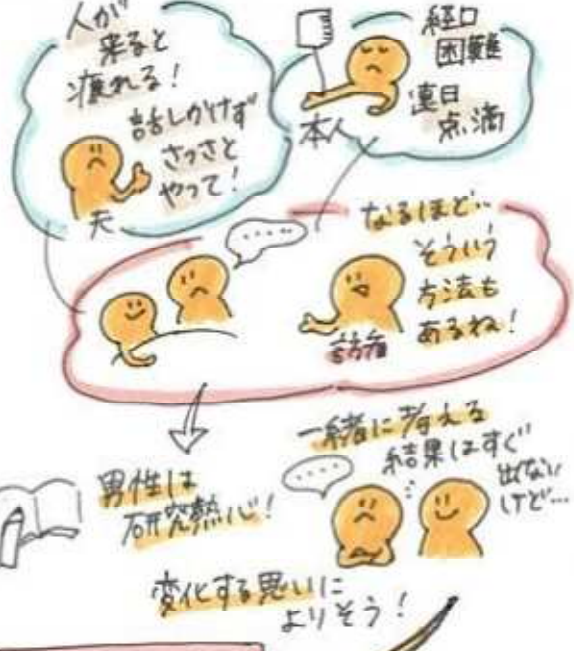 人が
来ると
疲れる!
話しかけず
さっさと
やって!
夫
経口
困難
連日
点滴
本人
なるほど..
そういう
方法も
あるね!
訪看
一緒に考える
結果はすぐ
出ない
けど…
男性は
研究熱心!
変化する思いに
よりそう!